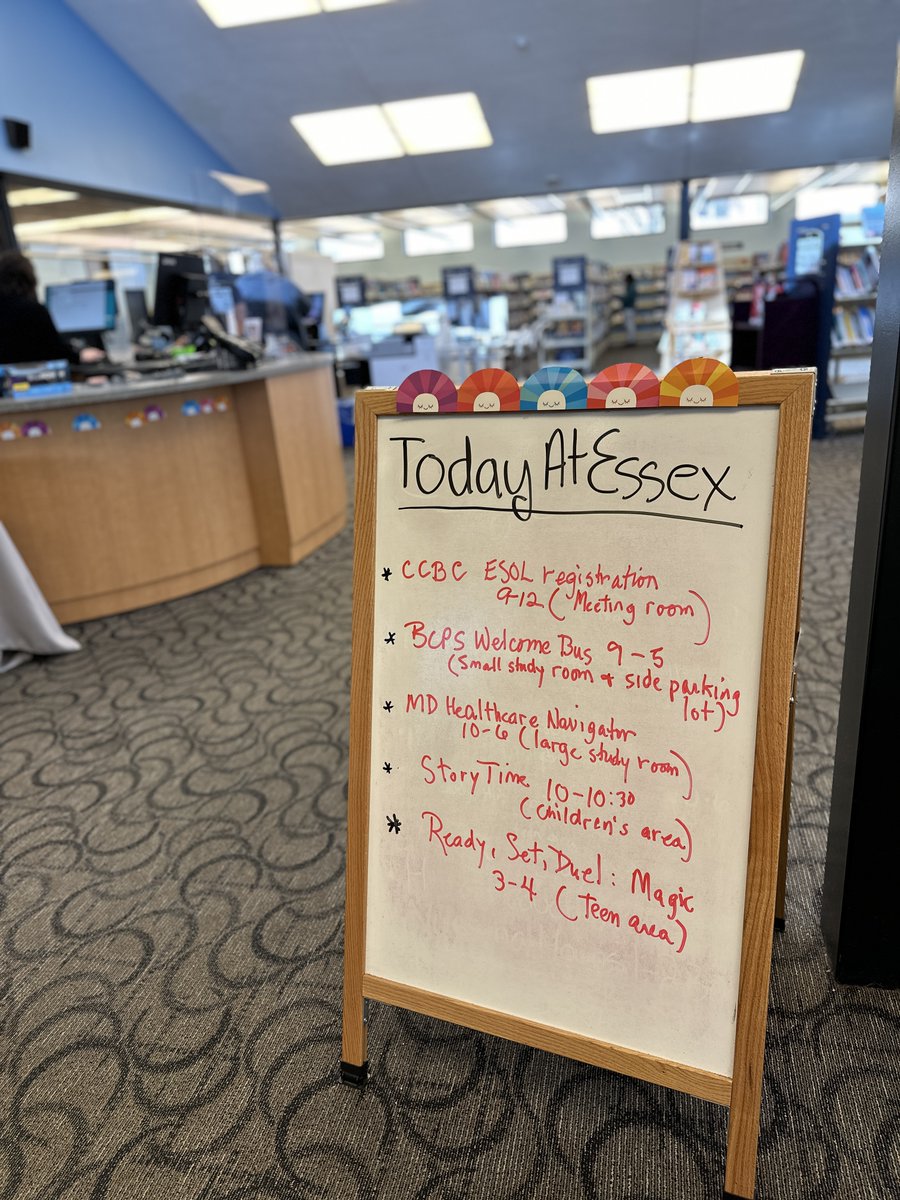 Today At Essex
* CCBC ESOL registration
9-12 (Meeting room)
* BCPS Welcome Bus 9-5
(Small study room & side parking
lot)
* MD Healthcare Navigator
10-6 (large study room)
* StoryTime 10-10:30
(Children's area)
* Ready, Set, Duel: Magic
3-4 (Teen area)